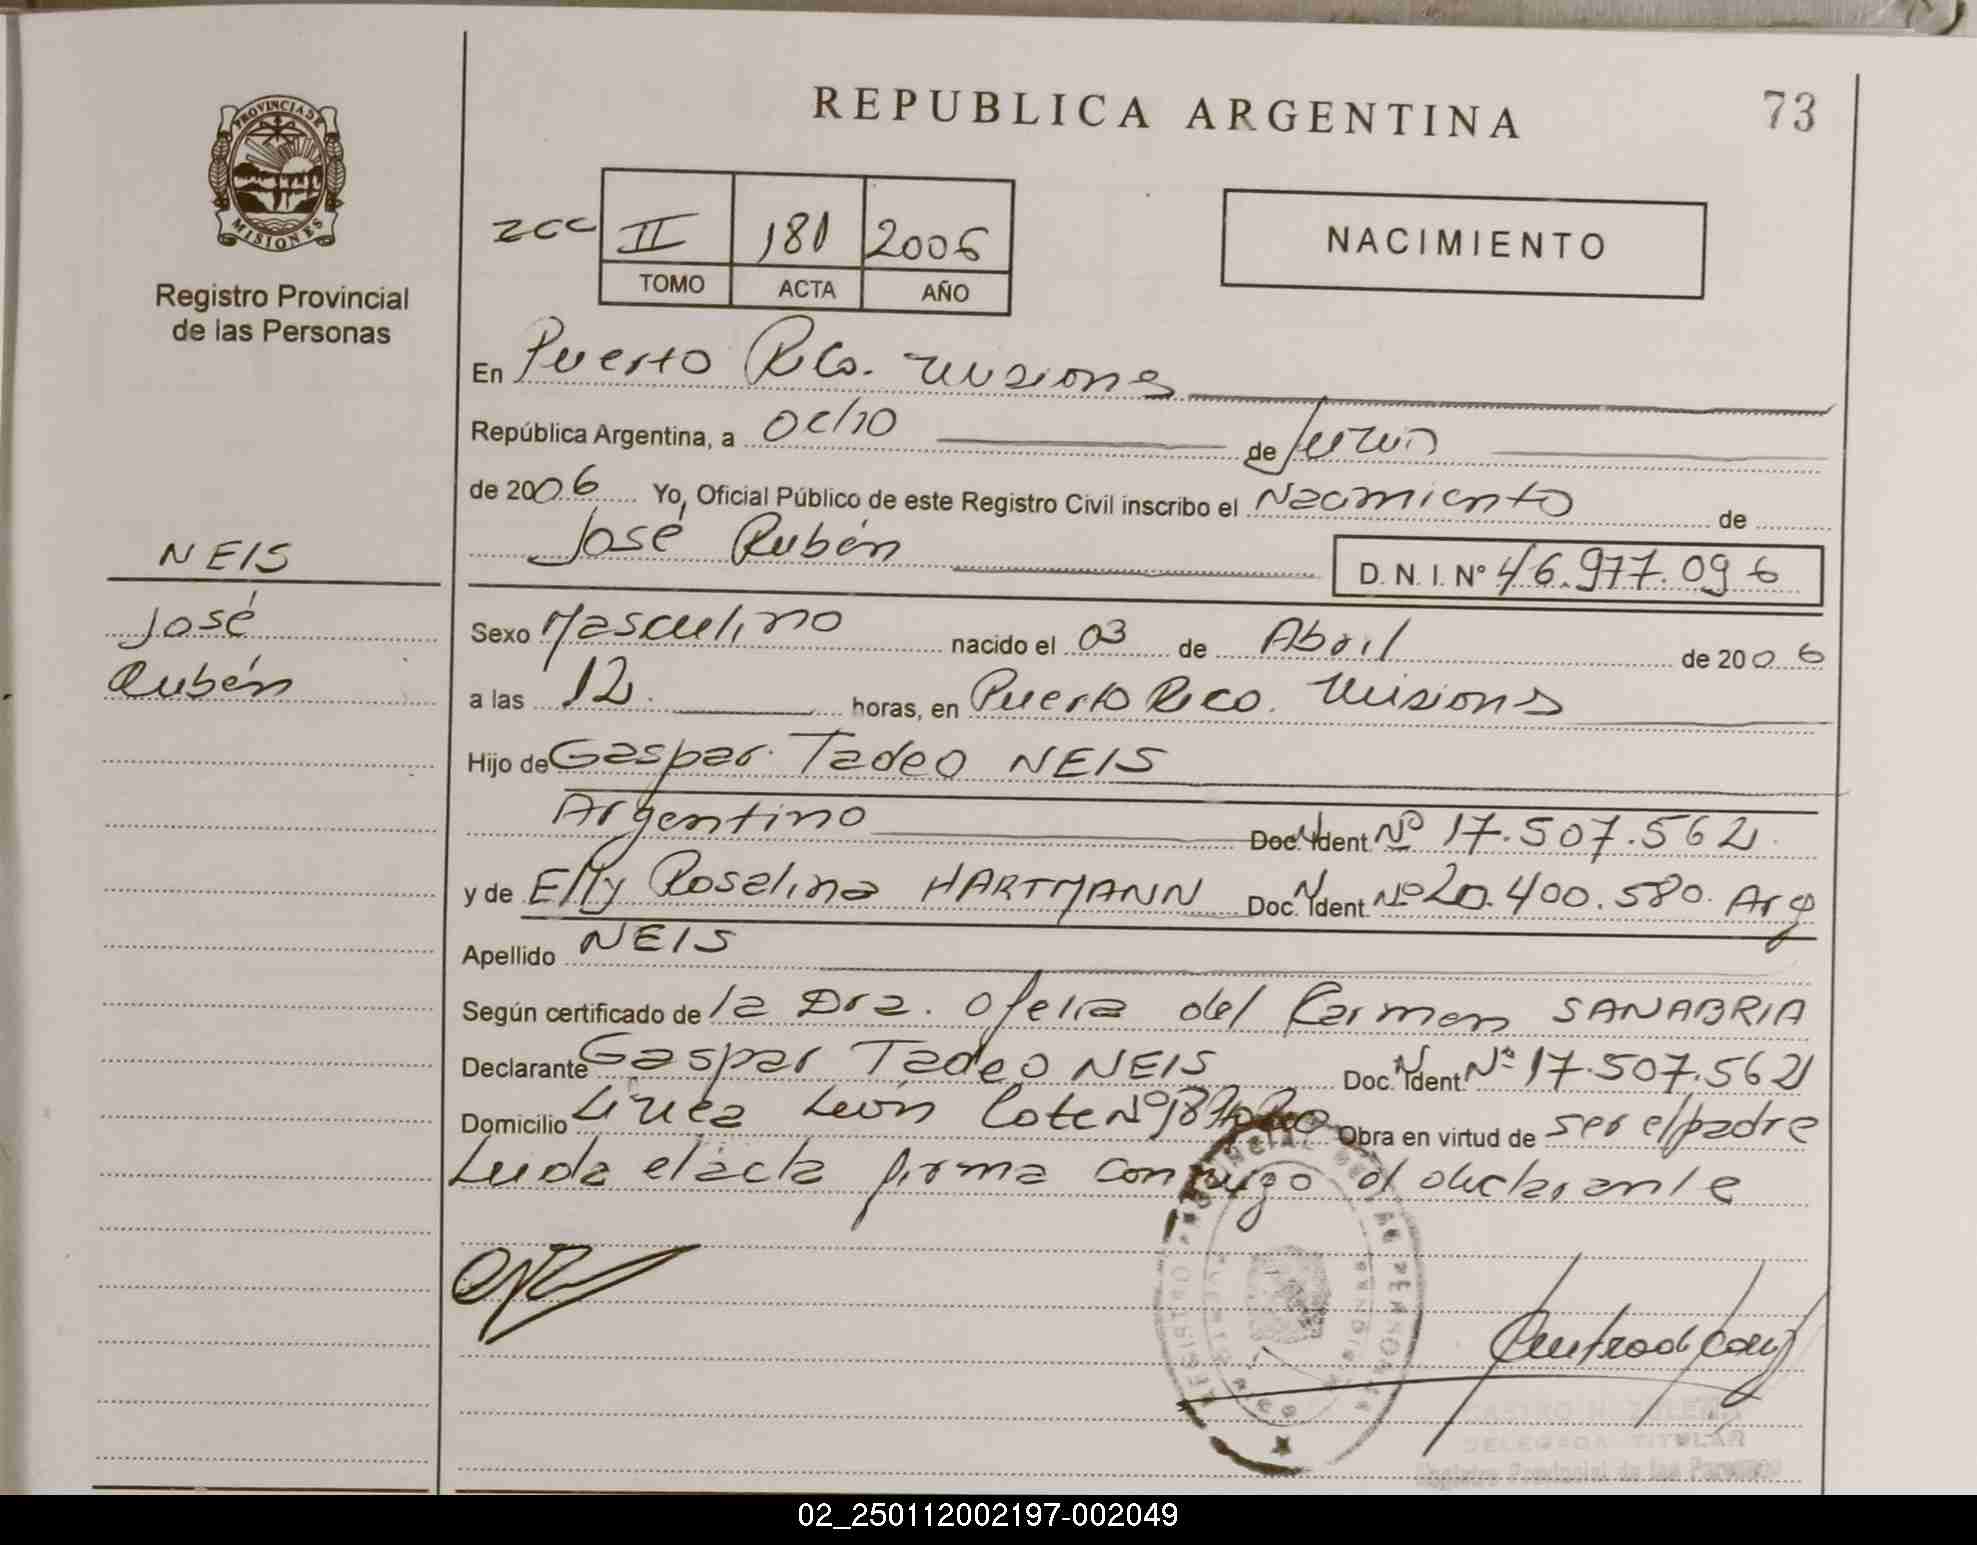 REPUBLICA ARGENTINA
73
PROVINCIA DE
MISIONES
Registro Provincial
de las Personas
II 181 2006
TOMO ACTA AÑO
NACIMIENTO
En Puerto Rico. Misiones
República Argentina, a ocho de Junio
de 2006 Yo, Oficial Público de este Registro Civil inscribo el Nacimiento de
José Rubén D. N. I. Nº 46.977.096
NEIS
José
Rubén
Sexo Masculino nacido el 03 de Abril de 2006
a las 12. horas, en Puerto Rico. Misiones
Hijo de Gaspar Tadeo NEIS
Argentino Doc. Ident. Nº 17.507.562
y de Elly Roselina HARTMANN Doc. Ident. Nº 20.400.580. Arg
Apellido NEIS
Según certificado de la Dra. Ofelia del Carmen SANABRIA
Declarante Gaspar Tadeo NEIS Doc. Ident. Nº 17.507.562
Domicilio Línea León Lote Nº Obra en virtud de ser el padre
Leida el acta firma conmigo el declarante
CASTRO
DELEGADA TITULAR
Registro Provincial de las Personas
02_250112002197-002049